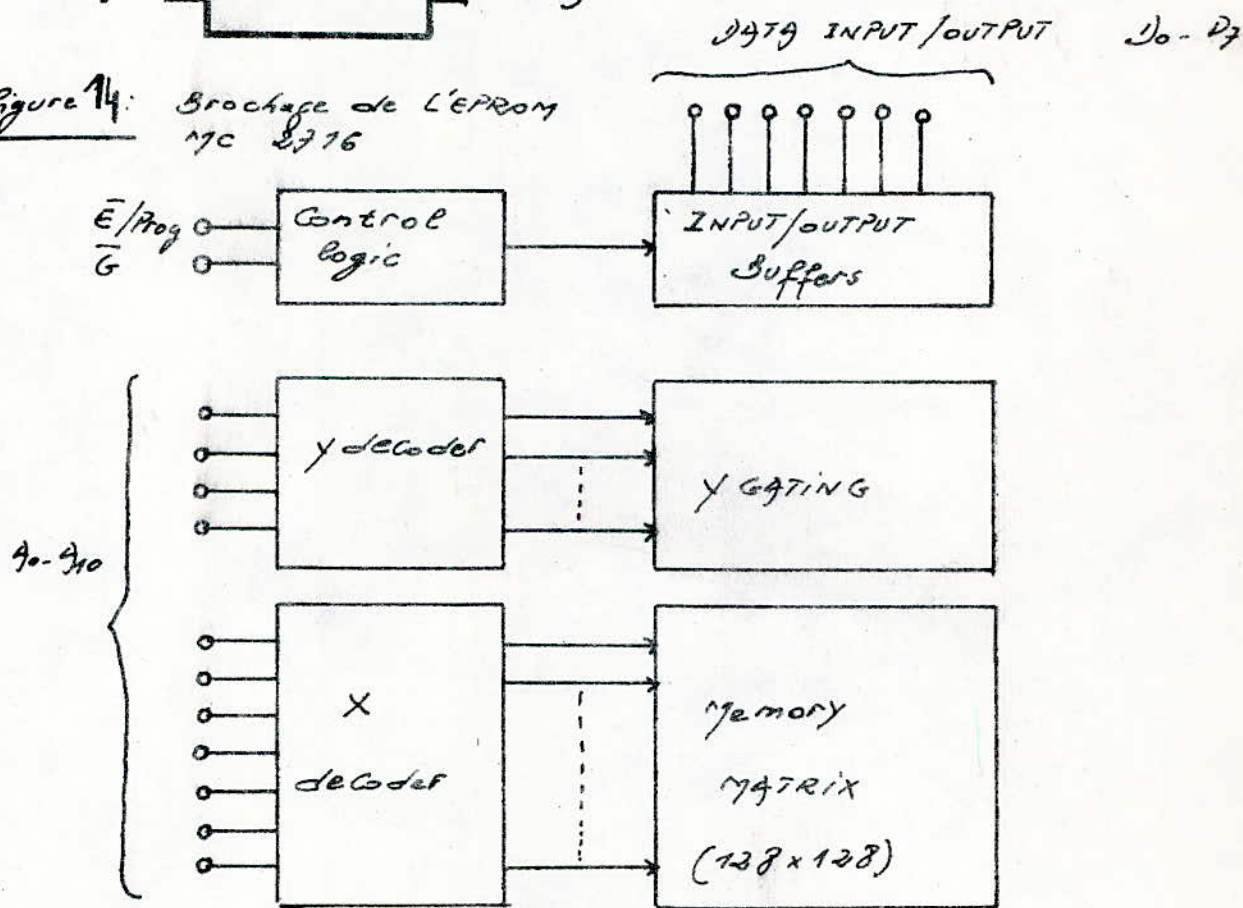 DATA INPUT/OUTPUT D0-D7
Figure 14: Brochage de L'EPROM
MC 2716
E̅/Prog
G̅
Control
logic
INPUT/OUTPUT
Buffers
Y decoder
Y GATING
A0-A10
X
decoder
Memory
MATRIX
(128x128)